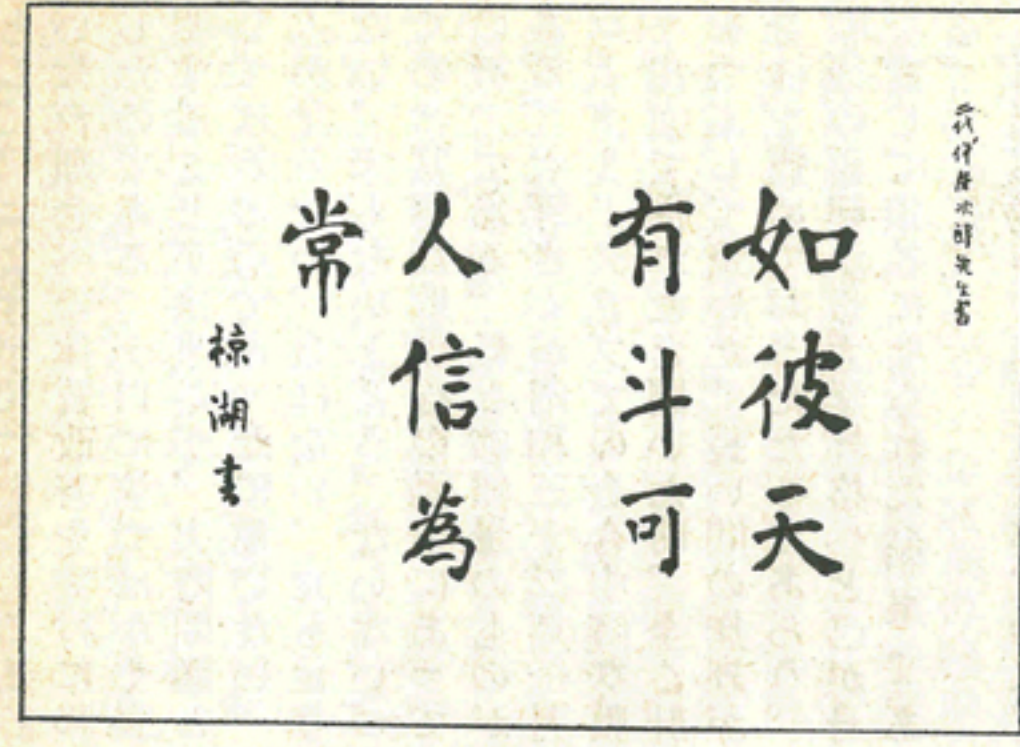 二代伊藤次郎先生書
如彼天
有斗可
人信為
常
椋湖書